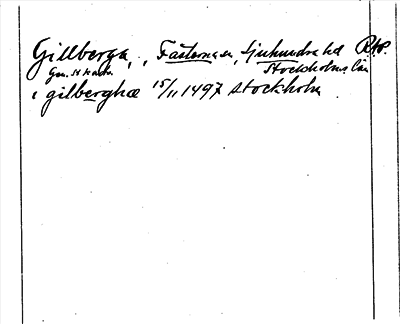 Gillberga, Fasterna sn, Sjuhundra hd RAP.
Stockholms län
i gilberghæ 15/11 1497 Stockholm